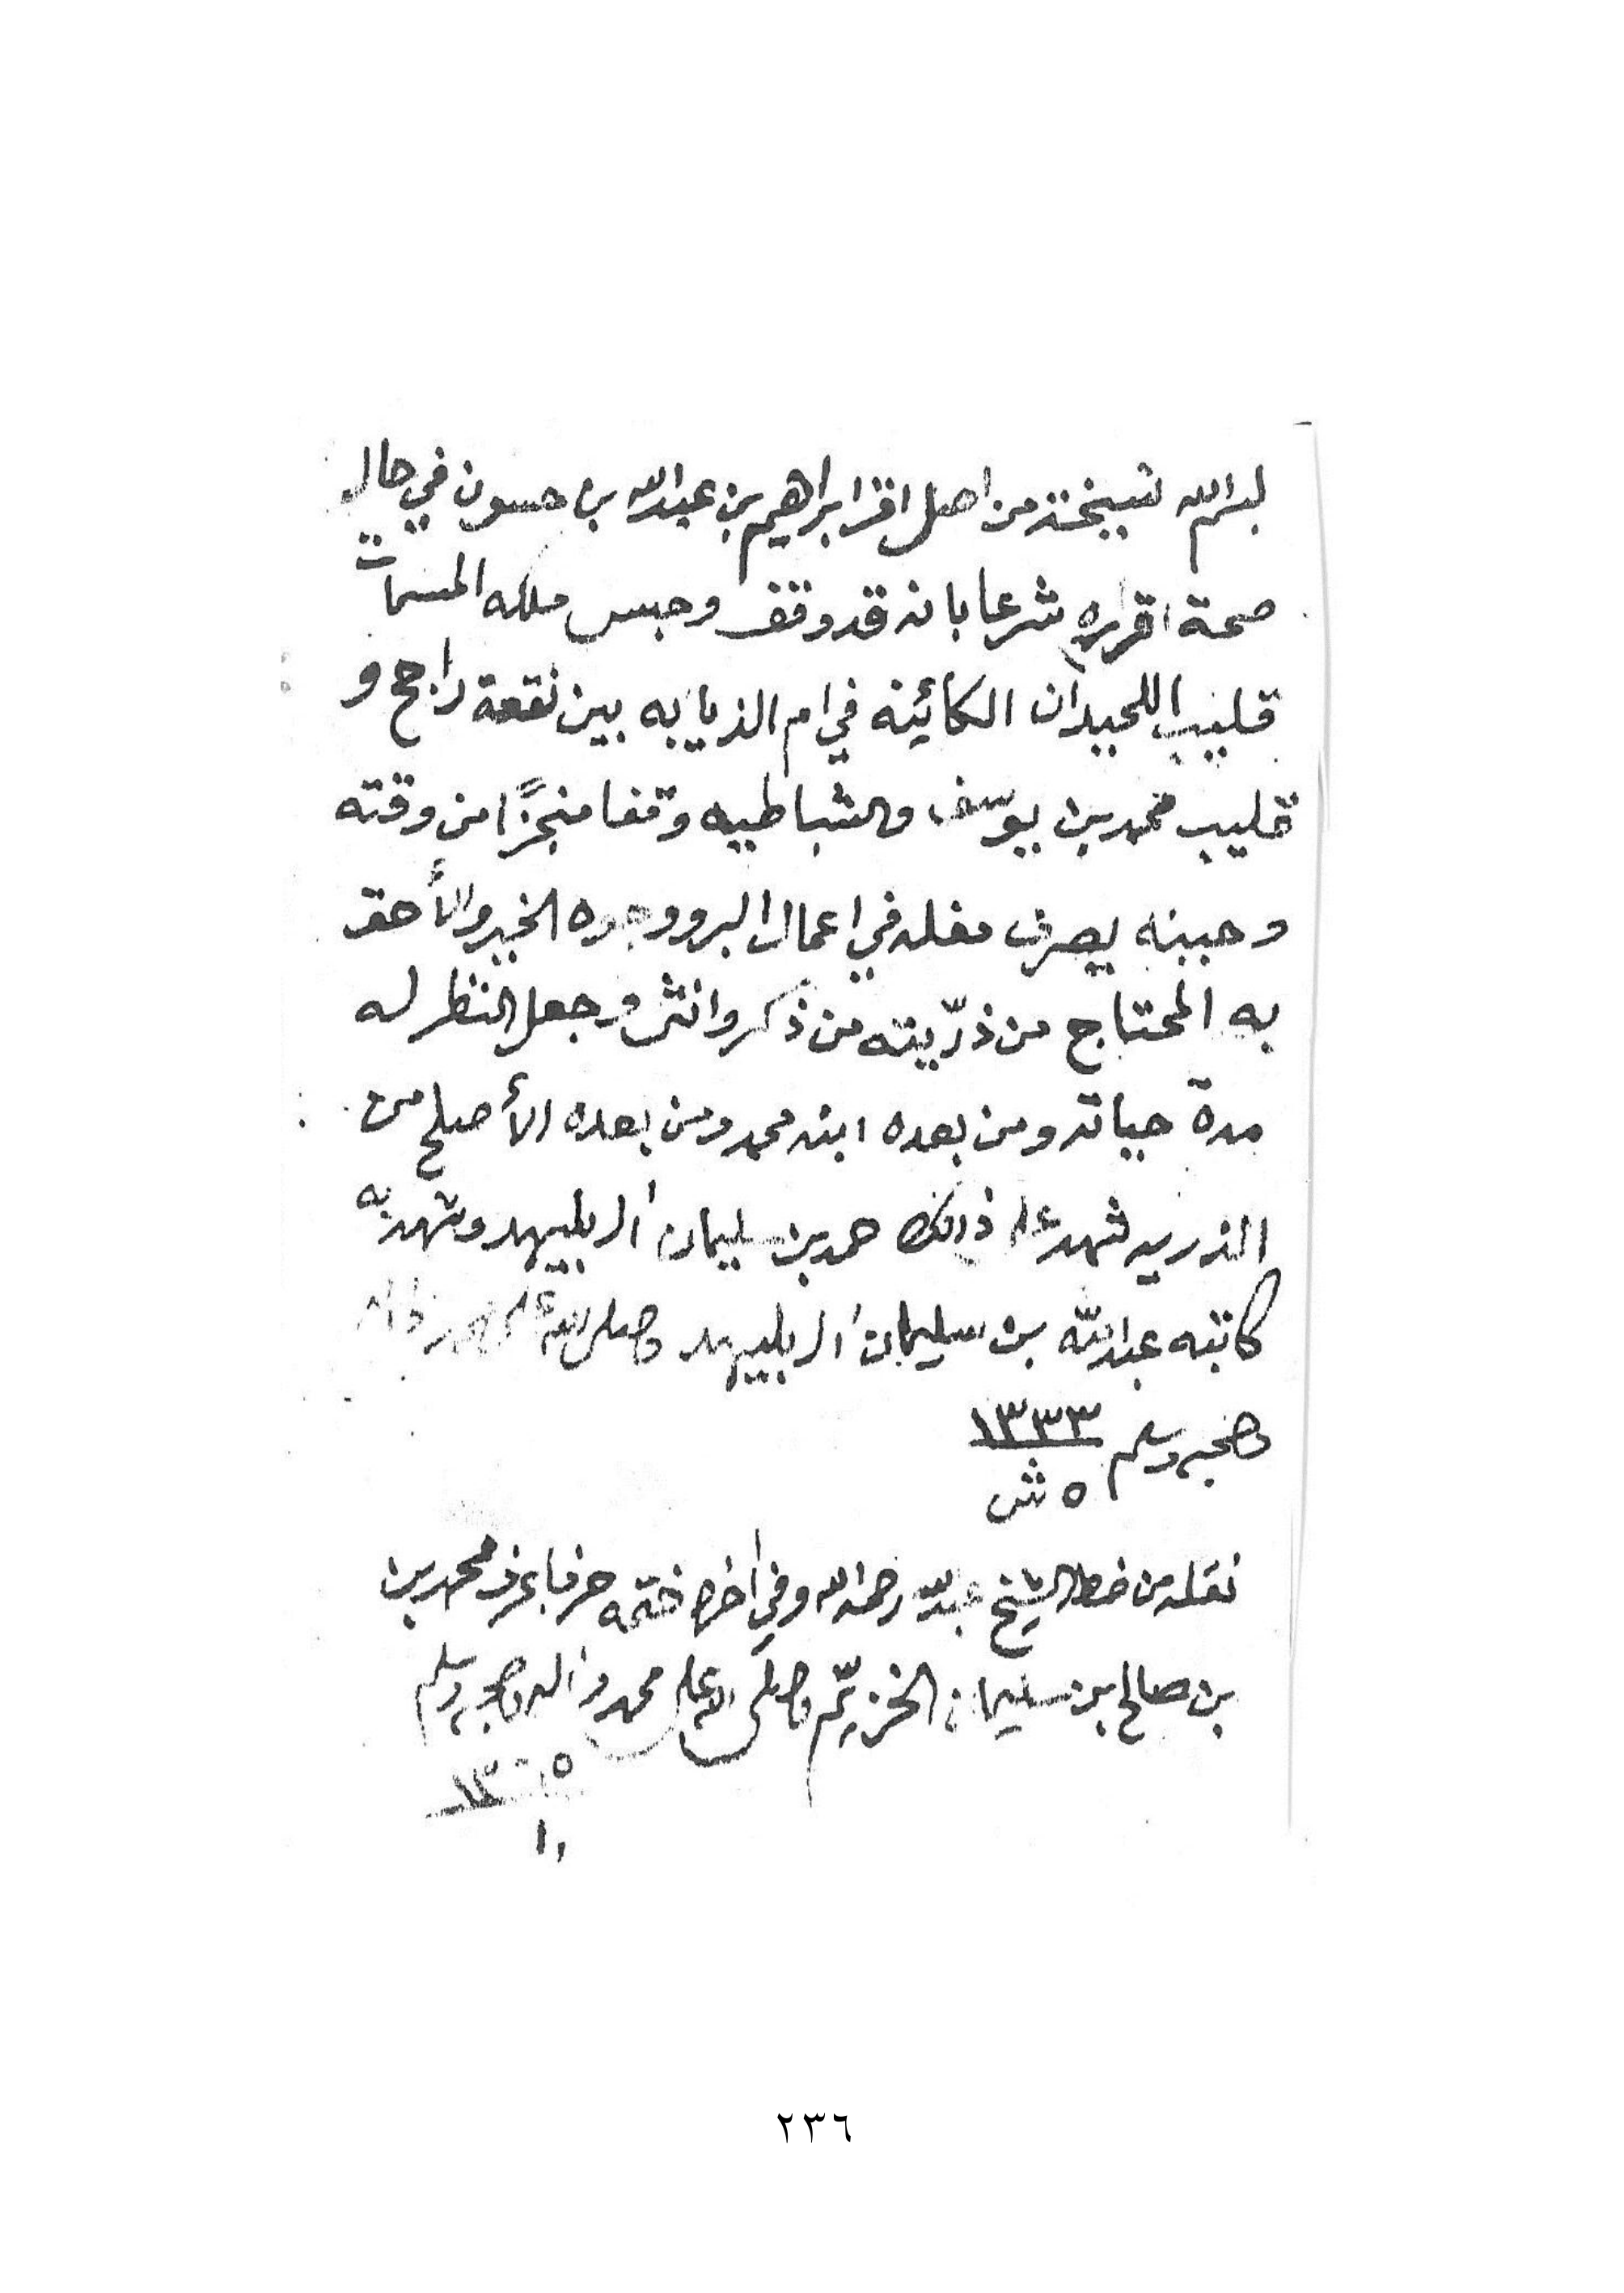 بسم الله نسخة من اصل اقر ابراهيم بن عبدالله بن حسون في حال
صحة اقراره شرعا بانه قد وقف وحبس ملكه المسمات
قليب اللحيدان الكائينه في ام الذيابه بين نقعة راجح و
قليب محمد بن يوسف والشباطيه وقفا منجزًا من وقته
وحينه يصرف مغله في اعمال البر ووجوه الخير والأحق
به المحتاج من ذرّيته من ذكر وانثى وجعل النظر له
مدة حياته ومن بعده ابنه محمد ومن بعده الأصلح من
الذريه شهد على ذالك حمد بن سليمان ال بليهد وشهد به
كاتبه عبدالله بن سليمان ال بليهد وصلى الله على محمد واله
وصحبه وسلم ١٣٣٣
٥ ش
نقله من خط الشيخ عبدالله رحمه الله وفي اخره ختمه حرفا بحرف محمد بن
بن صالح بن سليمان الخزيّم وصلى الله على محمد واله وصحبه وسلم
٢٣٦